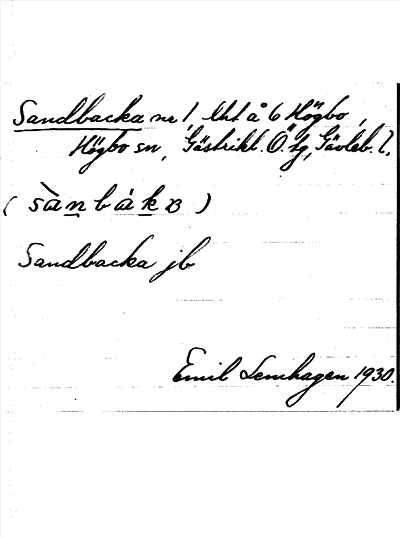 Sandbacka nr 1 lht å 6 Högbo,
Högbo sn, Gästrikl. Ö. tg, Gävleb. l.
( sànbákɐ )
Sandbacka jb
Emil Lenhagen 1930.